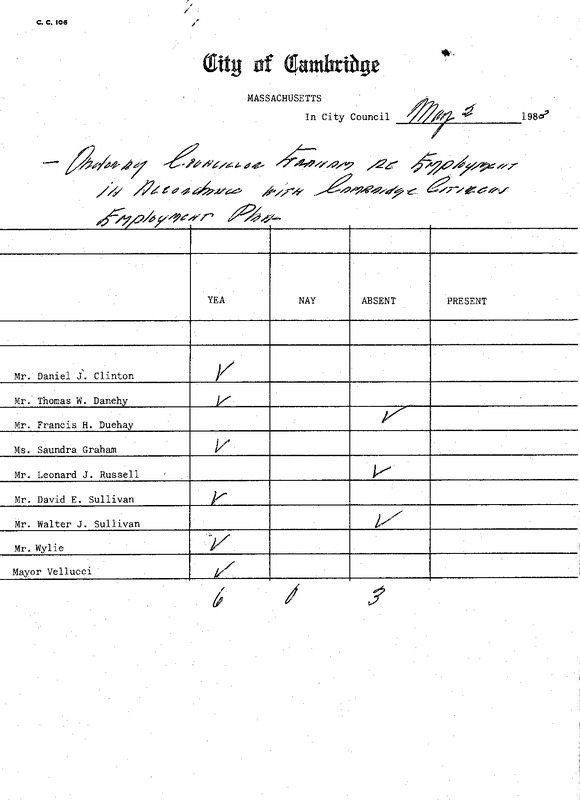 C. C. 106
City of Cambridge
MASSACHUSETTS
In City Council May 2 1983
— Order by Councillor Graham re Employment
in Accordance with Cambridge Citizens
Employment Plan
YEA NAY ABSENT PRESENT
Mr. Daniel J. Clinton ✓
Mr. Thomas W. Danehy ✓
Mr. Francis H. Duehay ✓
Ms. Saundra Graham ✓
Mr. Leonard J. Russell ✓
Mr. David E. Sullivan ✓
Mr. Walter J. Sullivan ✓
Mr. Wylie ✓
Mayor Vellucci ✓
6 0 3